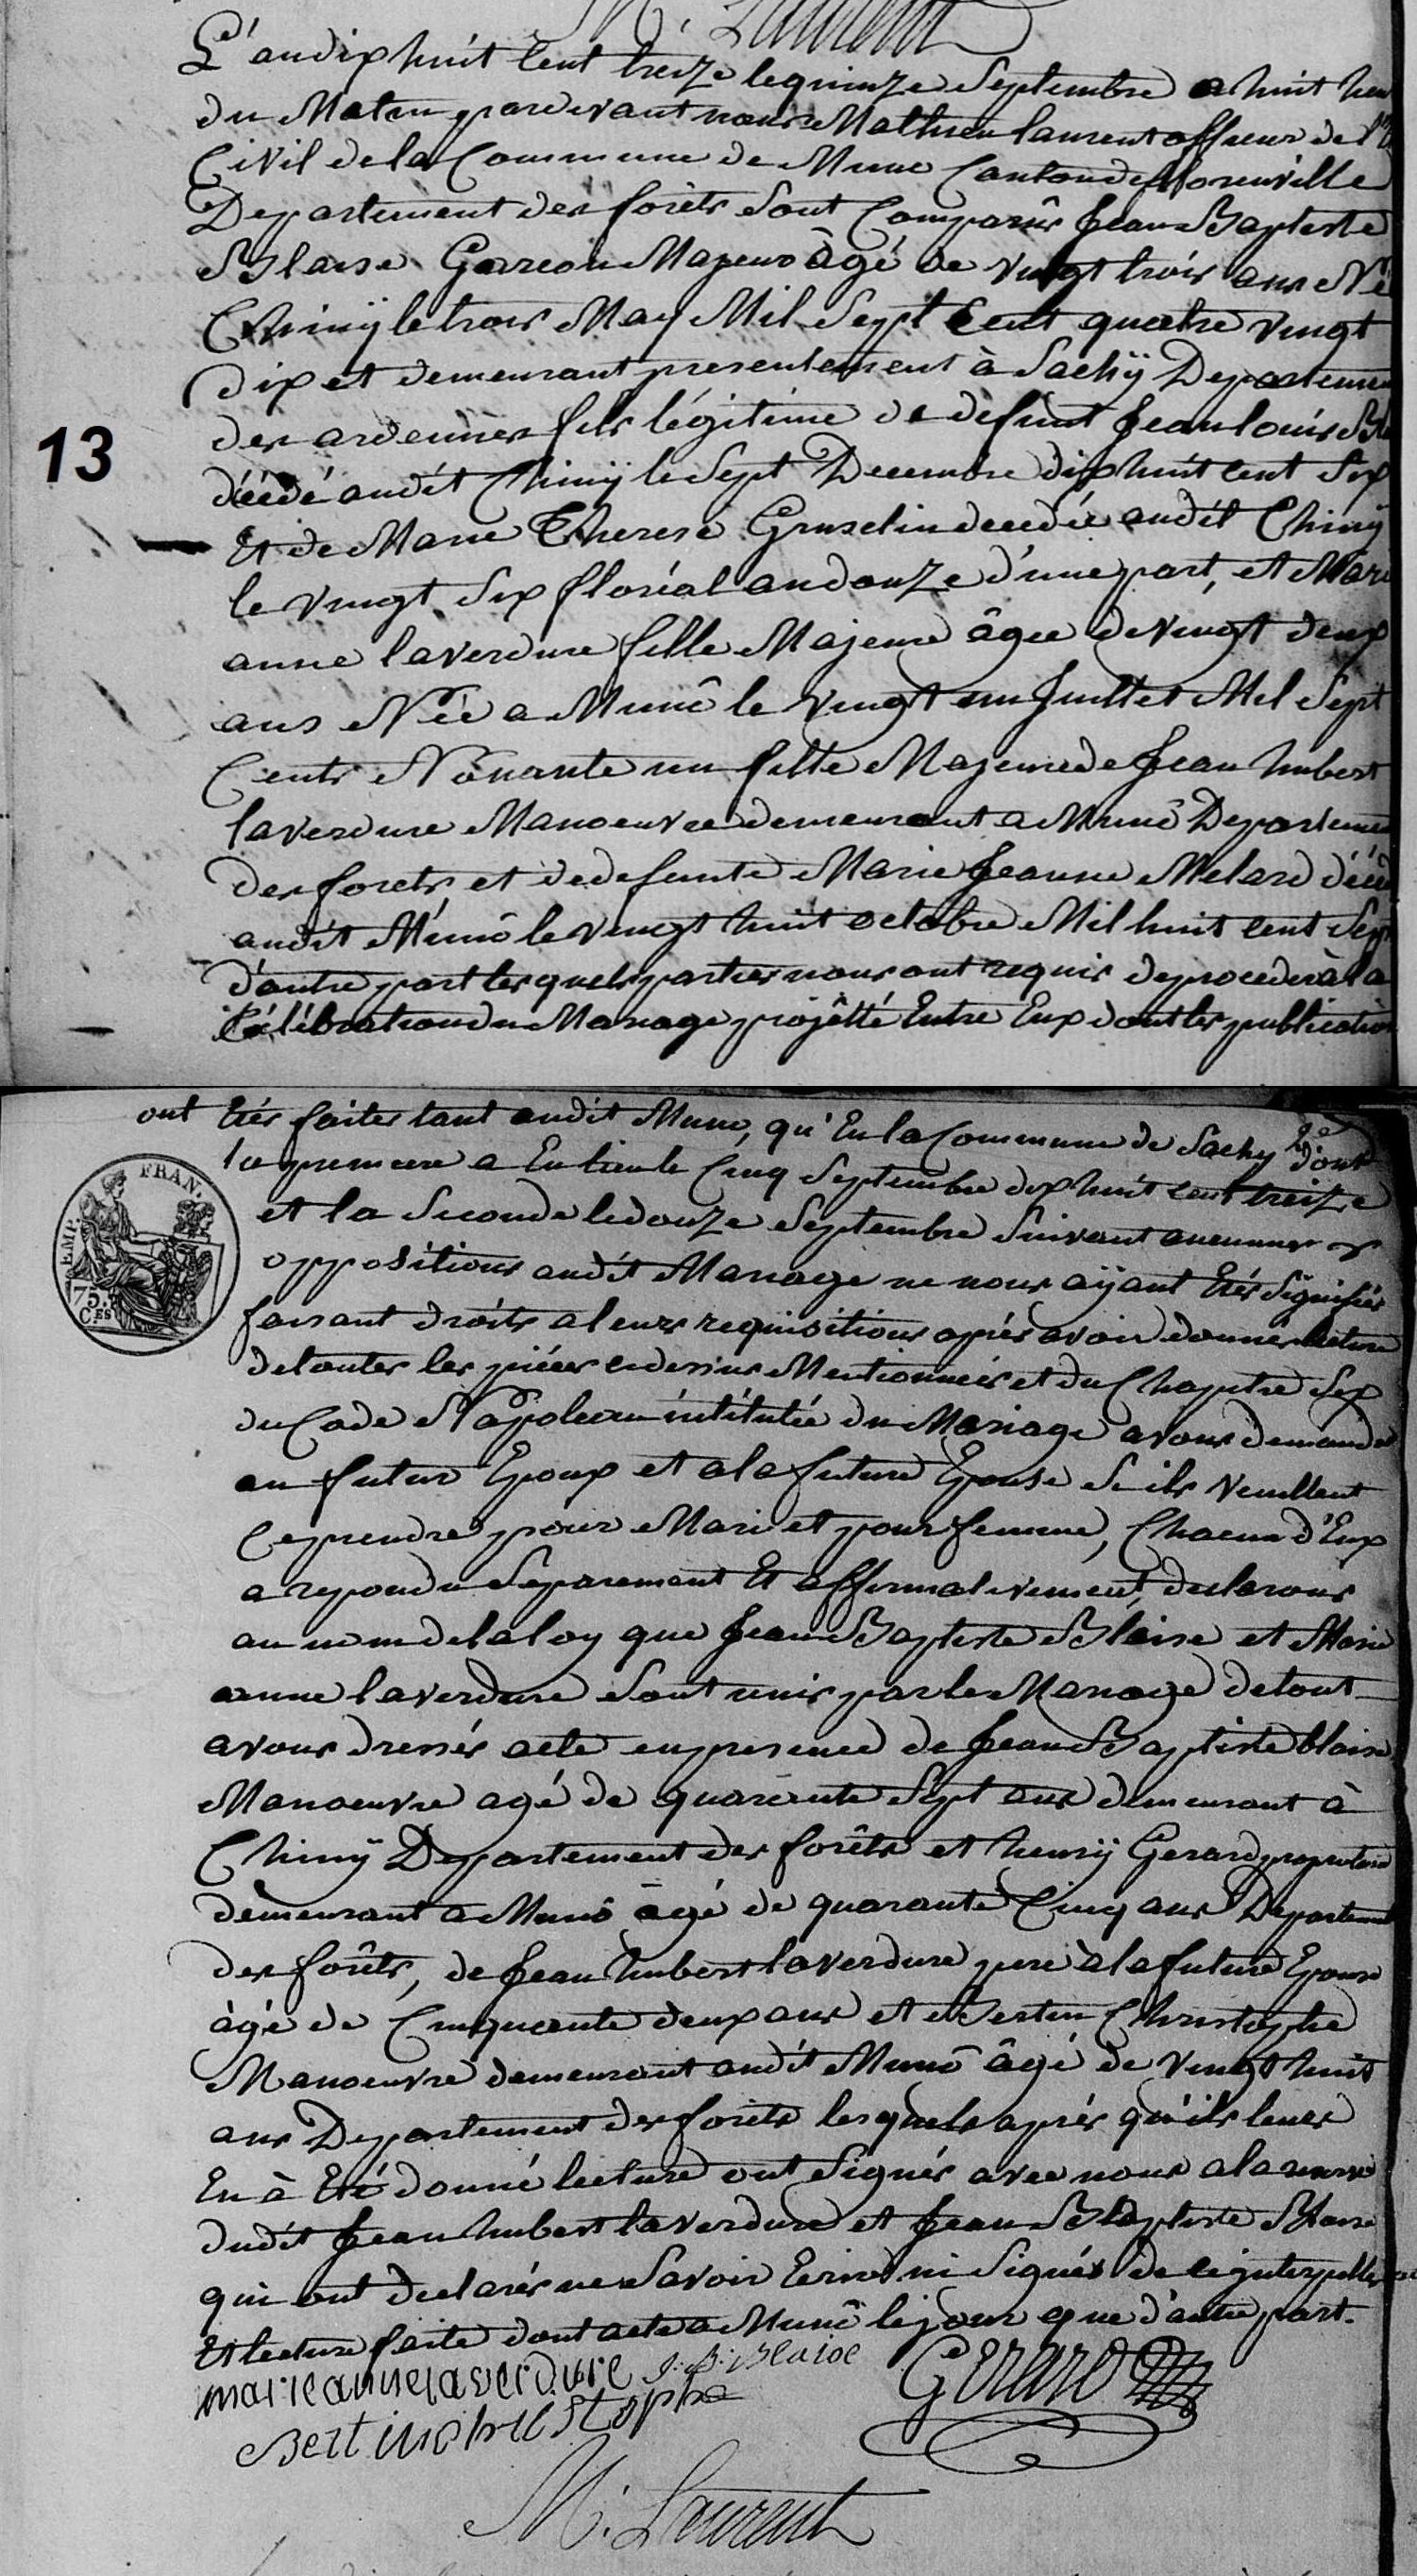 M. Laurent
L'an dix huit cent treize le quinze Septembre a huit heu
du Matin pardevant nous Mathieu laurent officier de l'
Civil de la Commune de Muno Canton de florenville
Departement des forêts Sont Comparûs Jean Baptiste
Blaise Garcon Majeur âgé de vingt trois ans Né
Chinÿ le trois May Mil Sept Cent quatre vingt
dix et demeurant presentement à Sachÿ Departemen
des ardennes fils légitime de defunt Jean louis Bl
décédé audit Chinÿ le Sept Decembre dix huit cent Six
13
Et de Marie Therese Gruselin decedée audit Chinÿ
le vingt Six floréal an douze d'une part, et Mari
anne laverdure fille Majeure âgée de vingt deux
ans Née a Munô le vingt un Juillet Mil Sept
Cents Nonante un fille Majeure de Jean hubert
laverdure Manoeuvre demeurant a Munô Departemen
des forets, et de defunte Marie Jeanne Melard décéd
audit Munô le vingt huit octobre Mil huit cent Sept
d'autre part les quels parties nous ont requis de proceder à la
Célébration du Mariage projètté Entre Eux dont les publication
ont Etés faites tant audit Muno, qu'En la Commune de Sachy dont
la premiere a Eu lieu le Cinq Septembre dix huit cent treize
et la Seconde le douze Septembre Suivant aucunes
oppositions audit Mariage ne nous aÿant Etés Signifiés
faisant droits a leurs requisitions aprés avoir donner lecture
de toutes les piéces cidessus Mentionneés et du Chapitre Six
du Code Napoleon intitulée du Mariage avons demandé
au futur Epoux et a la future Epouse Si ils veuillent
Ce prendre pour Mari et pour femme, Chacun d'Eux
a repondu Separement Et affirmativement, declarons
au nom de la loy que Jean Baptiste Blaise et Marie
anne laverdure Sont unis par le Mariage de tout
avons dressés acte en presence de Jean Baptiste blaise
Manoeuvre agé de quarante Sept ans demeurant à
Chinÿ Departement des forêts et henrÿ Gerard proprietaire
demeurant a Munô agé de quarante Cinq ans Departement
des forêts, de Jean hubert laverdure pere à la future Epouse
àgé de Cinquante deux ans et Bertin Christophe
Manoeuvre demeurant audit Munô âgé de vingt huit
ans Departement des forêts lesquels aprés qu'ils leurs
En à Eté donné lecture ont Signés avec nous a la reserve
dudit Jean hubert laverdure et Jean Baptiste Blaise
qui ont declarés ne Savoir Ecrire ni Signés de ce interpellé
Et lecture faite dont acte a Munô le jour que d'autre part.
EMP. FRAN.
75.
CES
marie anne laverdure J: B: Blaise Gerard
Bertin christophe
M. Laurent